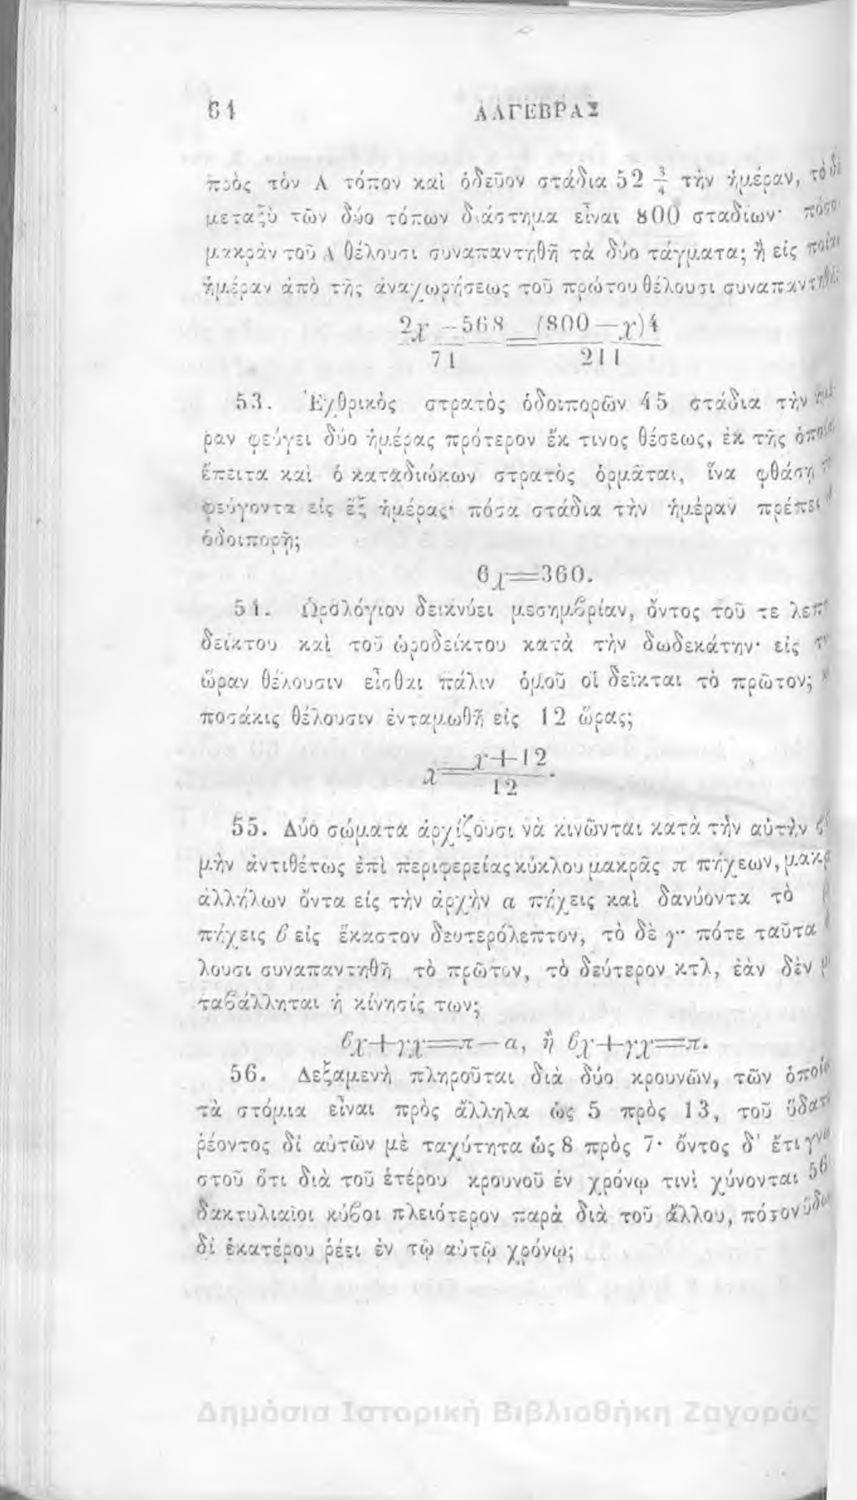 64 ΑΛΓΕΒΡΑΣ
πρὸς τὸν Α τόπον καὶ ὁδεῦον στάδια 52 3/4 τὴν ἡμέραν, τὸ
μεταξὺ τῶν δύο τόπων διάστημα εἶναι 800 σταδίων·
μακρὰν τοῦ Α θέλουσι συναπαντηθῆ τὰ δύο τάγματα; ἢ εἰς
ἡμέραν ἀπὸ τῆς ἀναχωρήσεως τοῦ πρώτου θέλουσι
2χ—568/71 = (800—χ)4/211
53. Ἐχθρικὸς στρατὸς ὁδοιπορῶν 45 στάδια τὴν
ραν φεύγει δύο ἡμέρας πρότερον ἔκ τινος θέσεως, ἐκ τῆς
ἔπειτα καὶ ὁ καταδιώκων στρατὸς ὁρμᾶται, ἵνα φθάσῃ
φεύγοντα εἰς ἓξ ἡμέρας· πόσα στάδια τὴν ἡμέραν πρέπει
ὁδοιπορῇ;
6χ=360.
54. Ὡρολόγιον δεικνύει μεσημβρίαν, ὄντος τοῦ τε λεπ
δείκτου καὶ τοῦ ὡροδείκτου κατὰ τὴν δωδεκάτην· εἰς
ὥραν θέλουσιν εἶσθαι πάλιν ὁμοῦ οἱ δεῖκται τὸ πρῶτον;
ποσάκις θέλουσιν ἐνταμωθῆ εἰς 12 ὥρας;
χ=χ+12/12.
55. Δύο σώματα ἀρχίζουσι νὰ κινῶνται κατὰ τὴν αὐτὴν
μὴν ἀντιθέτως ἐπὶ περιφερείας κύκλου μακρᾶς π πήχεων,
ἀλλήλων ὄντα εἰς τὴν ἀρχὴν α πήχεις καὶ δανύοντα τὸ
πήχεις β εἰς ἕκαστον δευτερόλεπτον, τὸ δὲ γ· πότε ταῦτα
λουσι συναπαντηθῆ τὸ πρῶτον, τὸ δεύτερον κτλ, ἐὰν δὲν
ταβάλληται ἡ κίνησίς των;
βχ+γχ=π—α, ἢ βχ+γχ=π.
56. Δεξαμενὴ πληροῦται διὰ δύο κρουνῶν, τῶν
τὰ στόμια εἶναι πρὸς ἄλληλα ὡς 5 πρὸς 13, τοῦ
ῥέοντος δἰ αὐτῶν μὲ ταχύτητα ὡς 8 πρὸς 7· ὄντος δ' ἔτι
στοῦ ὅτι διὰ τοῦ ἑτέρου κρουνοῦ ἐν χρόνῳ τινὶ χύνονται 56
δακτυλιαῖοι κύβοι πλειότερον παρὰ διὰ τοῦ ἄλλου, πόσον
δἰ ἑκατέρου ῥέει ἐν τῷ αὐτῷ χρόνῳ;
Δημόσια Ιστορική Βιβλιοθήκη Ζαγοράς